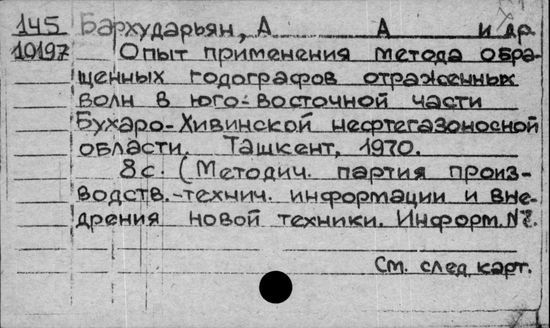 145 Бархударьян, А А и др.
10197 Опыт применения метода обра-
щенных годографов отраженных
волн в юго-восточной части
Бухаро-Хивинской нефтегазоносной
области. Ташкент, 1970.
8с. (Методич. партия произ-
водств.-технич. информации и вне-
дрения новой техники. Информ. №
См. след карт.